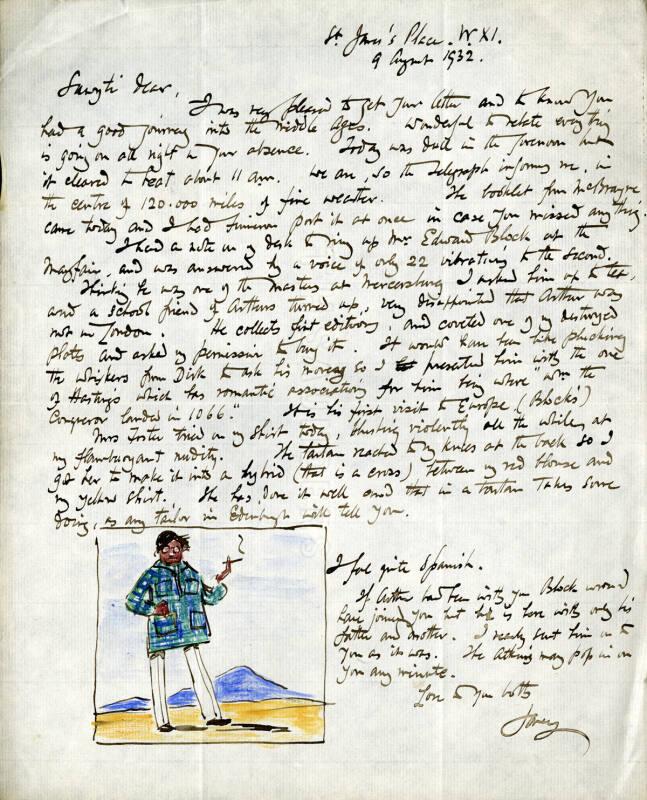 St. James's Place. W. XI.
9 August 1932.
dear,
I was very pleased to get your letter and to know you
had a good journey into the middle ages. Wonderful to relate everything
is going on all right in your absence. Today was dull in the forenoon but
it cleared to heat about 11 am. We are, so the Telegraph informs me, in
the centre of 120.000 miles of fine weather. The booklet from McBrayne
came today and I had post it at once in case you missed anything.
I had a note on my desk to ring up Mrs Edward Block at the
Mayfair, and was answered by a voice of only 22 vibrations to the second.
Thinking he was one of the masters at Mercersburg I asked him up to tea,
and a school friend of Arthurs turned up, very disappointed that Arthur was
not in London. He collects first editions, and coveted one of my destroyed
plates and asked my permission to buy it. It would have been like plucking
the whiskers from Dirk to ask his money so I presented him with the one
of Hastings which has romantic associations for him being where "Wm the
Conqueror landed in 1066." It is his first visit to Europe (Block's)
Mrs Foster tried on my shirt today, blushing violently all the while at
my flamboyant nudity. The tartan reached to my knees at the back so I
got her to make it into a hybrid (that is a cross) between my red blouse and
my yellow shirt. She has done it well and that in a tartan takes some
doing, as any tailor in Edinburgh will tell you.
I feel quite Spanish.
If Arthur had been with you Block would
have joined you but he is here with only his
father and mother. I nearly sent him on to
you as it was. The may pop in on
you any minute.
Love to you both